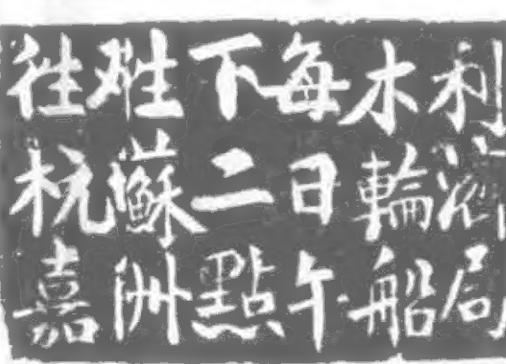 利濟局
木輪船
每日午
下二點
蘇洲
往杭嘉